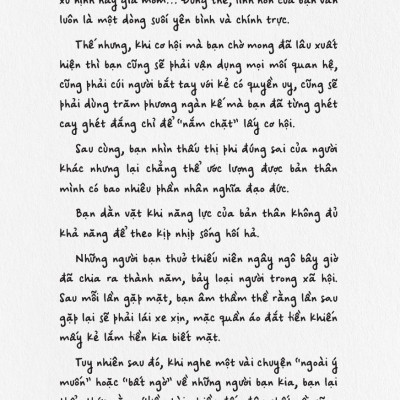 luôn là một dòng suối yên bình và chính trực.
Thế nhưng, khi cơ hội mà bạn chờ mong đã lâu xuất
hiện thì bạn cũng sẽ phải vận dụng mọi mối quan hệ,
cũng phải cúi người bắt tay với kẻ có quyền uy, cũng sẽ
phải dùng trăm phương ngàn kế mà bạn đã từng ghét
cay ghét đắng chỉ để "nắm chặt" lấy cơ hội.
Sau cùng, bạn nhìn thấu thị phi đúng sai của người
khác nhưng lại chẳng thể ước lượng được bản thân
mình có bao nhiêu phần nhân nghĩa đạo đức.
Bạn dằn vặt khi năng lực của bản thân không đủ
khả năng để theo kịp nhịp sống hối hả.
Những người bạn thuở thiếu niên ngây ngô bây giờ
đã chia ra thành năm, bảy loại người trong xã hội.
Sau mỗi lần gặp mặt, bạn âm thầm thề rằng lần sau
gặp lại sẽ phải lái xe xịn, mặc quần áo đắt tiền khiến
mấy kẻ lắm tiền kia biết mặt.
Tuy nhiên sau đó, khi nghe một vài chuyện "ngoài ý
muốn" hoặc "bất ngờ" về những người bạn kia, bạn lại